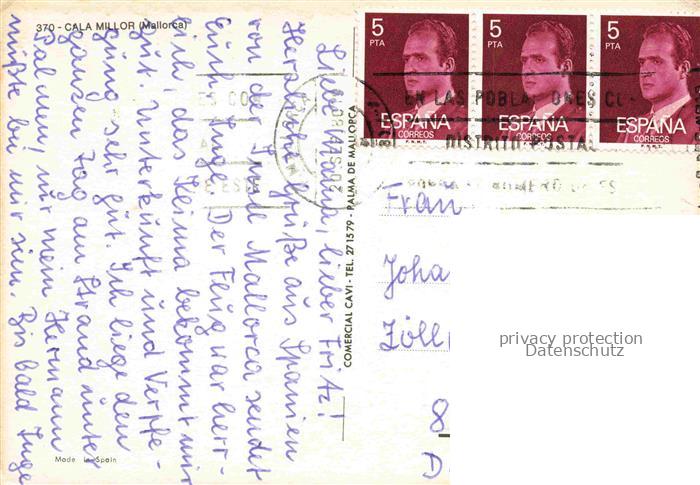 370 - CALA MILLOR (Mallorca)
Liebe Hanna, lieber Fritz!
Herzliche Grüße aus Spanien
von der Insel Mallorca sendet
Euch Inge. Der Flug war herr-
lich, das Klima bekommt mir
gut. Unterkunft und Verpfle-
gung sehr gut. Ich liege den
ganzen Tag am Strand unter
Palmen, nur mein Hermann
müßte bei mir sein. Bis bald Inge
Made in Spain
COMERCIAL CAVI - TEL. 271579 - PALMA DE MALLORCA
5
PTA
ESPAÑA
CORREOS
5
PTA
ESPAÑA
CORREOS
5
PTA
ESPAÑA
CORREOS
EN LAS POBLACIONES CO
DISTRITO POSTAL
Frau
Joha
Zöll
8
D
privacy protection
Datenschutz